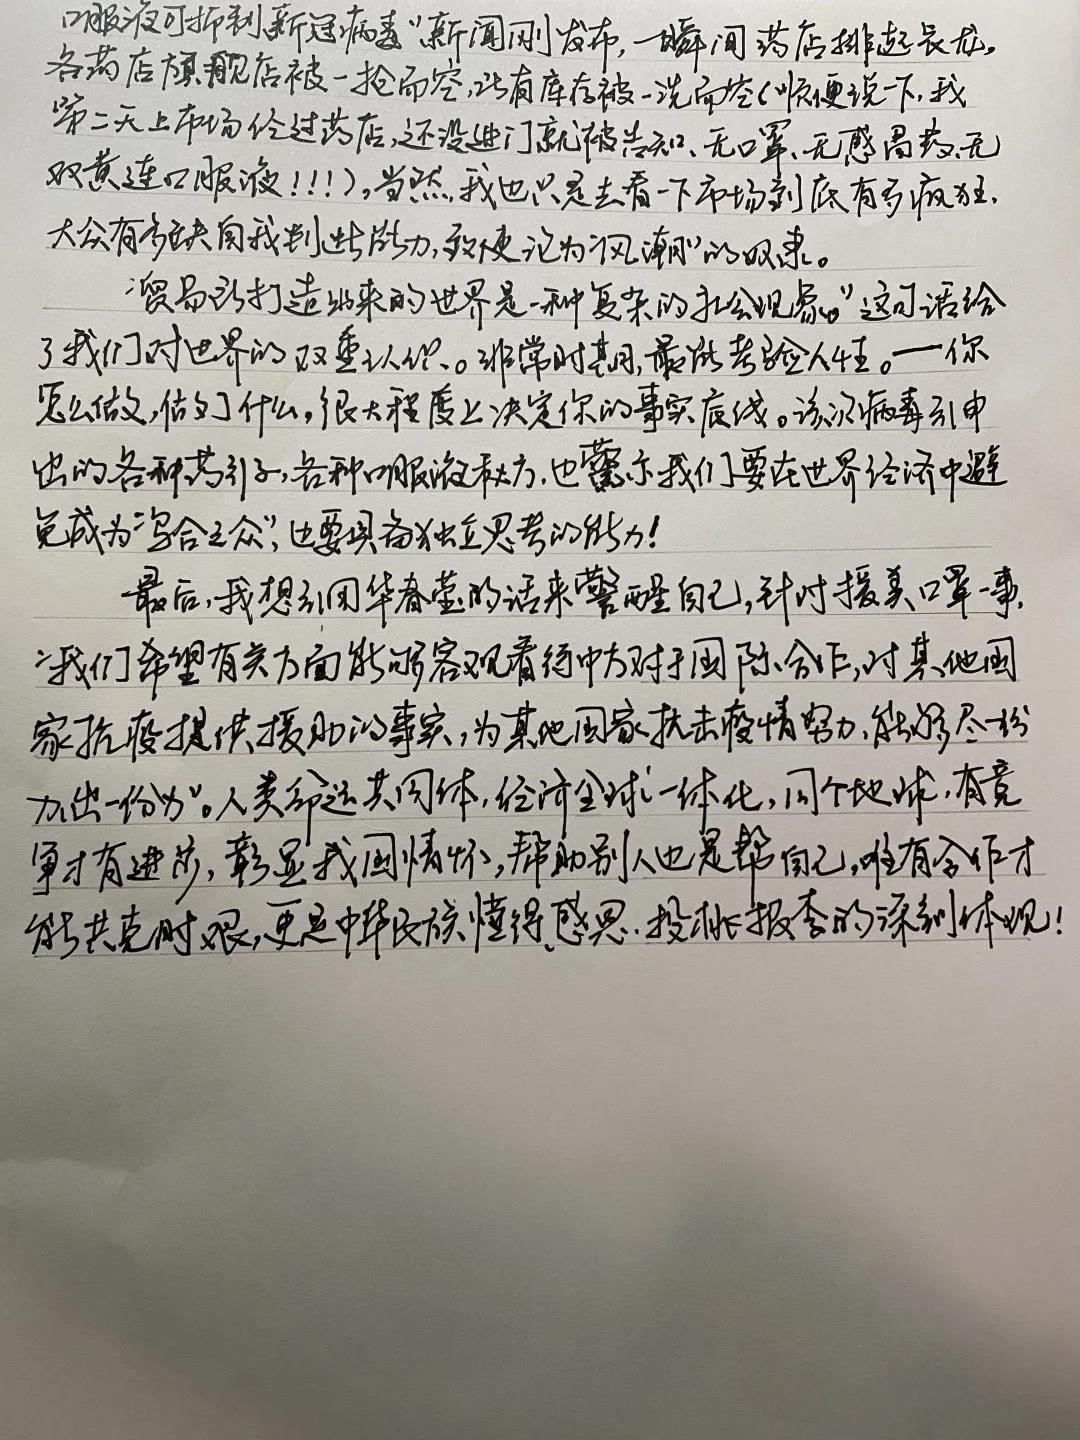 口服液可抑制新冠病毒"新闻刚发布,一瞬间药店排起长龙。
各药店旗舰店被一抢而空,所有库存被一洗而空(顺便说一下,我
第二天上市场经过药店,还没进门就被告知、无口罩、无感冒药、无
双黄连口服液!!!),当然,我也只是去看一下市场到底有多疯狂,
大众有多缺自我判断能力,致使沦为"风潮"的奴隶。
"贸易所打造出来的世界是一种复杂的社会现象。"这句话给
了我们对世界的双重认识。非常时期,最能考验人性。一你
怎么做,做了什么,很大程度上决定你的事实底线。该次病毒引申
出的各种药引子,各种口服液秘方,也警示我们要在世界经济中避
免成为"乌合之众",也要具备独立思考的能力!
最后,我想引用华春莹的话来警醒自己,针对援美口罩一事,
"我们希望有关方面能够客观看待中方对于国际合作,对其他国
家抗疫提供援助的事实,为其他国家抗击疫情努力,能够尽一份
力,出一份力"。人类命运共同体,经济全球一体化,同个地球,有竞
争才有进步,彰显我国情怀,帮助别人也是帮自己,唯有合作才
能共克时艰,更是中华民族懂得感恩、投桃报李的深刻体现!